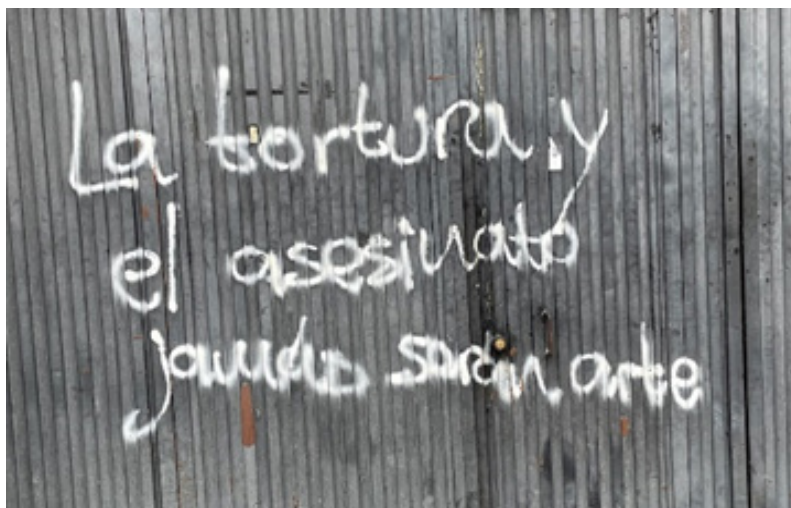 La tortura y
el asesinato
jamás serán arte